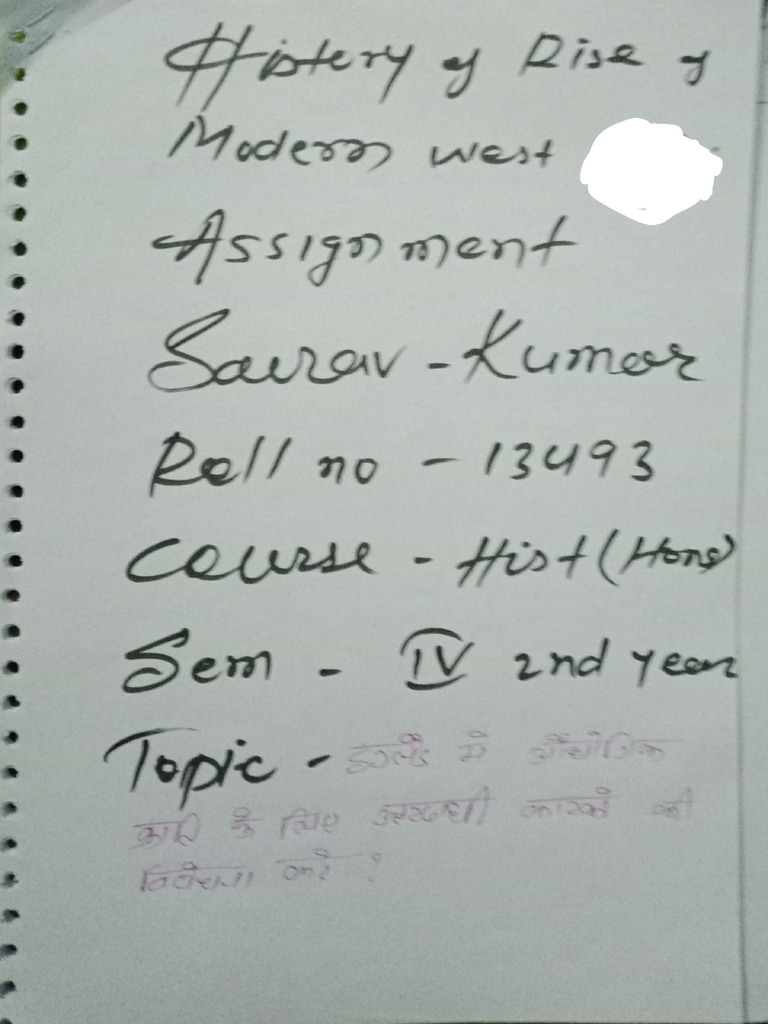 History of Rise of
Modern West
Assignment
Saurav - Kumar
Roll no - 13493
Course - Hist (Hons)
Sem - IV 2nd year
Topic - इंग्लैंड में औद्योगिक
क्रांति के लिए उत्तरदायी कारकों की
विवेचना करें ?